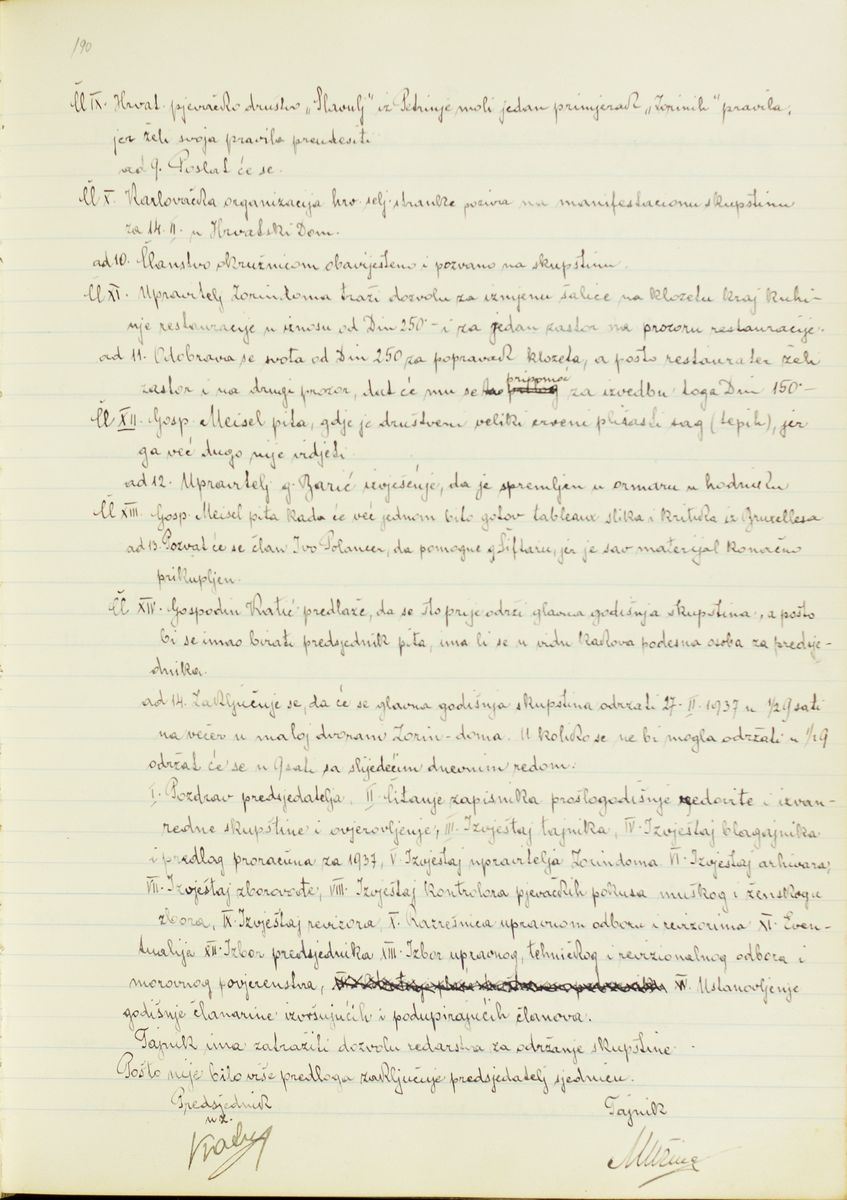 190
Čl IX. Hrvat. pjevačko društvo „Slavulj" iz Petrinje moli jedan primjerak „Zorinih" pravila,
jer želi svoja pravila preudesiti.
ad 9. Poslat će se.
Čl X. Karlovačka organizacija hrv. selj. stranke poziva na manifestacionu skupštinu
za 14. II. u Hrvatski Dom.
ad 10. Članstvo okružnicom obavješteno i pozvano na skupštinu.
Čl XI. Upravitelj Zorindoma traži dozvolu za izmjenu šalice na klozetu kraj kuhi-
nje restauracije u iznosu od Din 250·- i za jedan zastor na prozoru restauracije.
ad 11. Odobrava se svota od Din 250 za popravak klozeta, a pošto restaurater želi
zastor i na drugi prozor, dat će mu se pripomoć za izvedbu toga Din 150·-
Čl XII. Gosp. Meisel pita, gdje je društveni veliki crveni plišasti sag (tepih), jer
ga već dugo nije vidjeti.
ad 12. Upravitelj g. Barić izvješćuje, da je spremljen u ormaru u hodniku
Čl XIII. Gosp. Meisel pita kada će već jednom biti gotov tableaux slika i kritika iz Bruxellesa
ad 13. Pozvat će se član Ivo Polancer, da pomogne g Šiftaru, jer je sav materijal konačno
prikupljen.
Čl XIV. Gospodin Kratić predlaže, da se što prije održi glavna godišnja skupština, a pošto
bi se imao birati predsjednik pita, ima li se u vidu kakova podesna osoba za predsje-
dnika.
ad 14. Zaključuje se, da će se glavna godišnja skupština održati 27. II. 1937 u 1/2 9 sati
na večer u maloj dvorani Zorin-doma. U koliko se ne bi mogla održati u 1/2 9
održat će se u 9 sati sa slijedećim dnevnim redom:
I. Pozdrav predsjedatelja, II. Čitanje zapisnika prošlogodišnje redovite i izvan-
redne skupštine i ovjerovljenje, III. Izvještaj tajnika, IV. Izvještaj blagajnika
i predlog proračuna za 1937, V. Izvještaj upravitelja Zorindoma VI. Izvještaj arhivara,
VII. Izvještaj zborovođe, VIII. Izvještaj kontrolora pjevačkih pokusa muškog i ženskoga
zbora, IX. Izvještaj revizora, X. Razrešnica upravnom odboru i revizorima XI. Even-
tualija XII. Izbor predsjednika XIII. Izbor upravnog, tehničkog i revizionalnog odbora i
morovnog povjerenstva, XIV. Ustanovljenje
godišnje članarine izvršujućih i podupirajućih članova.
Tajnik ima zatražiti dozvolu redarstva za održanje skupštine.
Pošto nije bilo više predloga zaključuje predsjedatelj sjednicu.
Predsjednik Tajnik
u z.